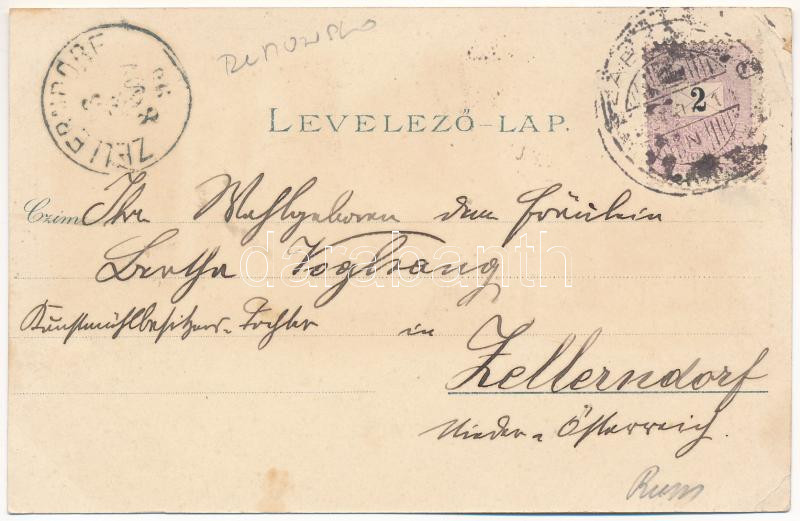 ZELLERNDORF
98
LEVELEZŐ-LAP.
2
Czim Ihr Wohlgeboren dem Fräulein
Bertha Voglsang
Kunstmühlbesitzers-Tochter in
Zellerndorf
Nieder-Österreich.
darabanth